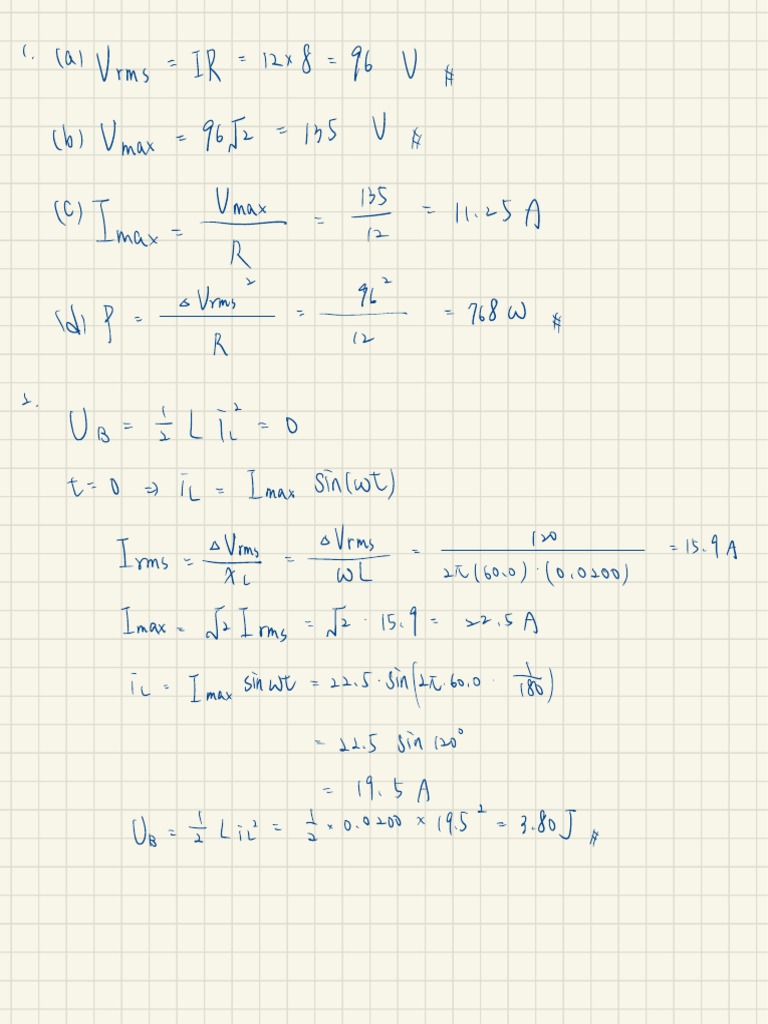 1. (a) Vrms = IR = 12 × 8 = 96 V #
(b) Vmax = 96√2 = 135 V #
(c) Imax = Vmax / R = 135 / 12 = 11.25 A
(d) P = ΔVrms² / R = 96² / 12 = 768 W #
2.
U_B = 1/2 L i_L² = 0
t = 0 ⇒ i_L = Imax sin(ωt)
Irms = ΔVrms / X_L = ΔVrms / ωL = 120 / 2π(60.0)·(0.0200) = 15.9 A
Imax = √2 Irms = √2 · 15.9 = 22.5 A
i_L = Imax sin ωt = 22.5 · sin(2π·60.0 · 1/180)
= 22.5 sin 120°
= 19.5 A
U_B = 1/2 L i_L² = 1/2 × 0.0200 × 19.5² = 3.80 J #